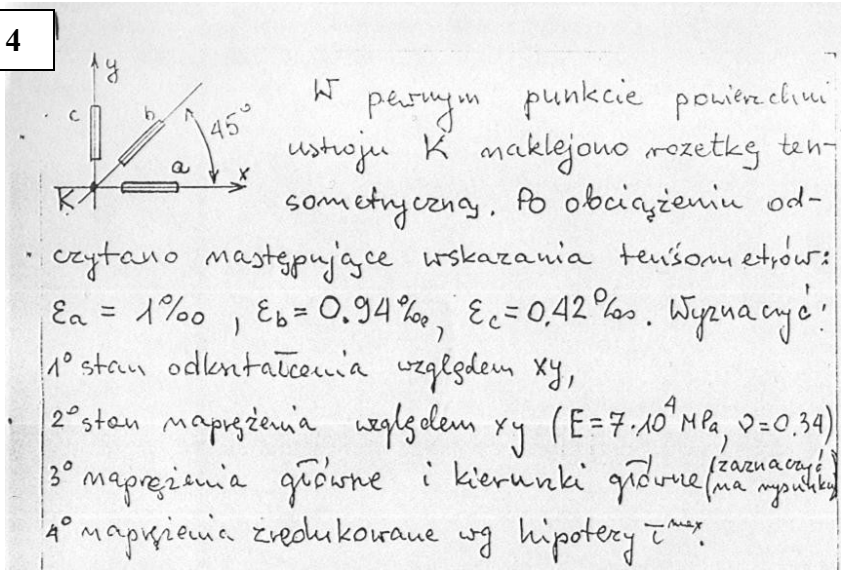 4
y
c
b
45°
a
x
K
W pewnym punkcie powierzchni
ustroju K naklejono rozetkę ten-
sometryczną. Po obciążeniu od-
czytano następujące wskazania tensometrów:
εa = 1‰, εb = 0.94‰, εc = 0.42‰. Wyznaczyć:
1° stan odkształcenia względem xy,
2° stan naprężenia względem xy (E = 7·10⁴ MPa, ν = 0.34)
3° naprężenia główne i kierunki główne (zaznaczyć na rysunku)
4° naprężenia zredukowane wg hipotezy τ^max.